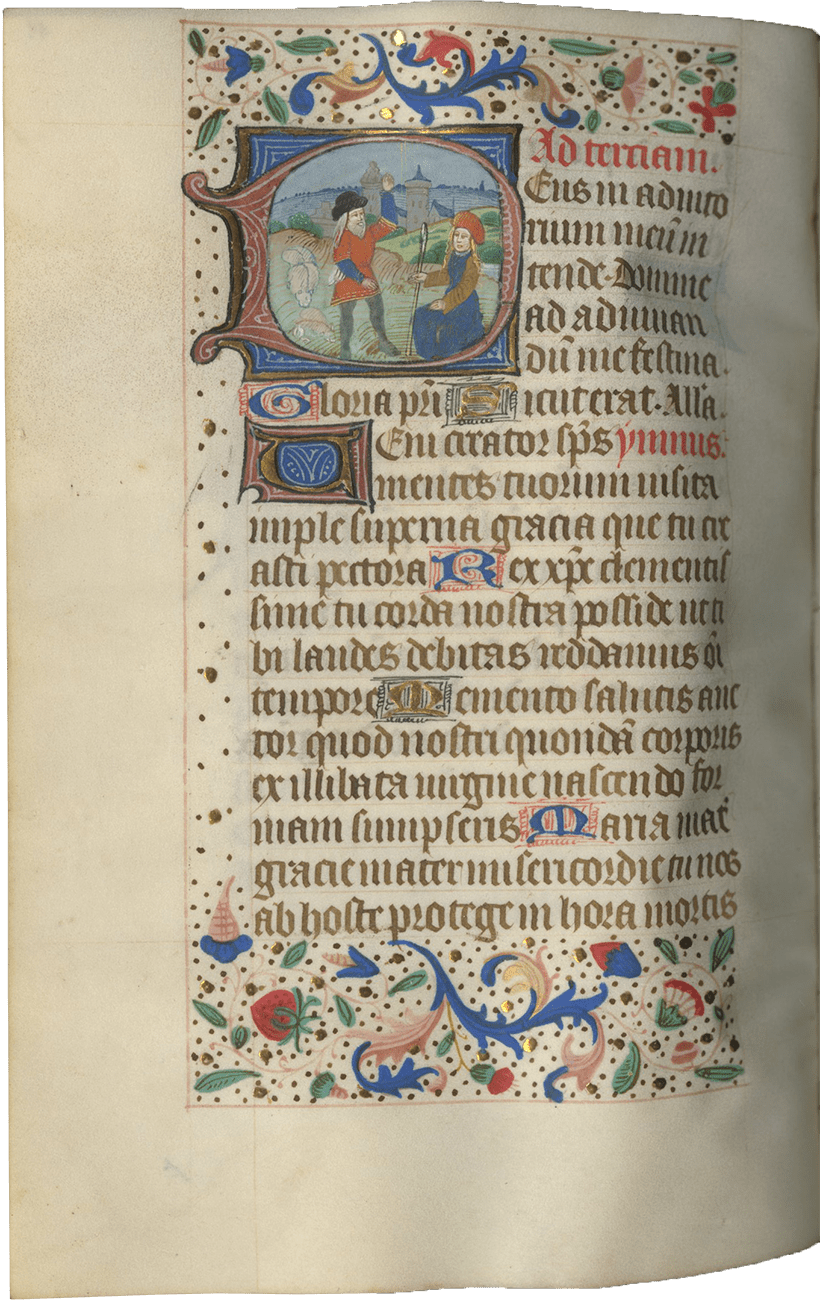 Ad terciam.
Eus in adiuto
rium meū in
tende. Domine
ad adiuuan
dū me festina.
Gloria pr̄i Sicut erat. All'a.
Ueni creator sp̄s ymnus.
mentes tuorum uisita
imple superna gracia que tu cre
asti pectora Rex xp̄e clementis
sime tu corda nostra posside ut ti
bi laudes debitas reddamus oī
tempore Memento salutis auc
tor quod nostri quondā corporis
ex illibata uirgine nascendo for
mam sumpseris Maria mat̄
gracie mater misericordie tu nos
ab hoste protege in hora mortis